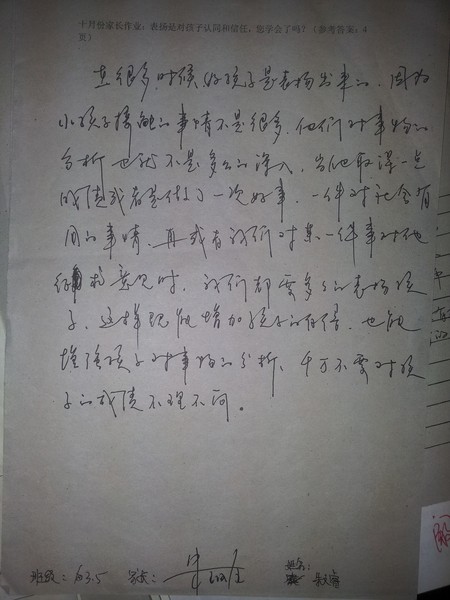 十月份家长作业:表扬是对孩子认同和信任,您学会了吗?(参考答案:4
页)
在很多时候好孩子是表扬出来的,因为
小孩子接触的事情不是很多,他们对事物的
分析也就不是多么的深入,当他取得一点
成绩或者是做了一次好事,一件对社会有
用的事情,再或者我们对某一件事对他
很有意见时,我们都要多多的表扬孩
子,这样既能增加孩子的自信,也能
增强孩子对事物的分析,千万不要对孩
子的成绩不理不问。
班级:633.5 家长: 姓名: